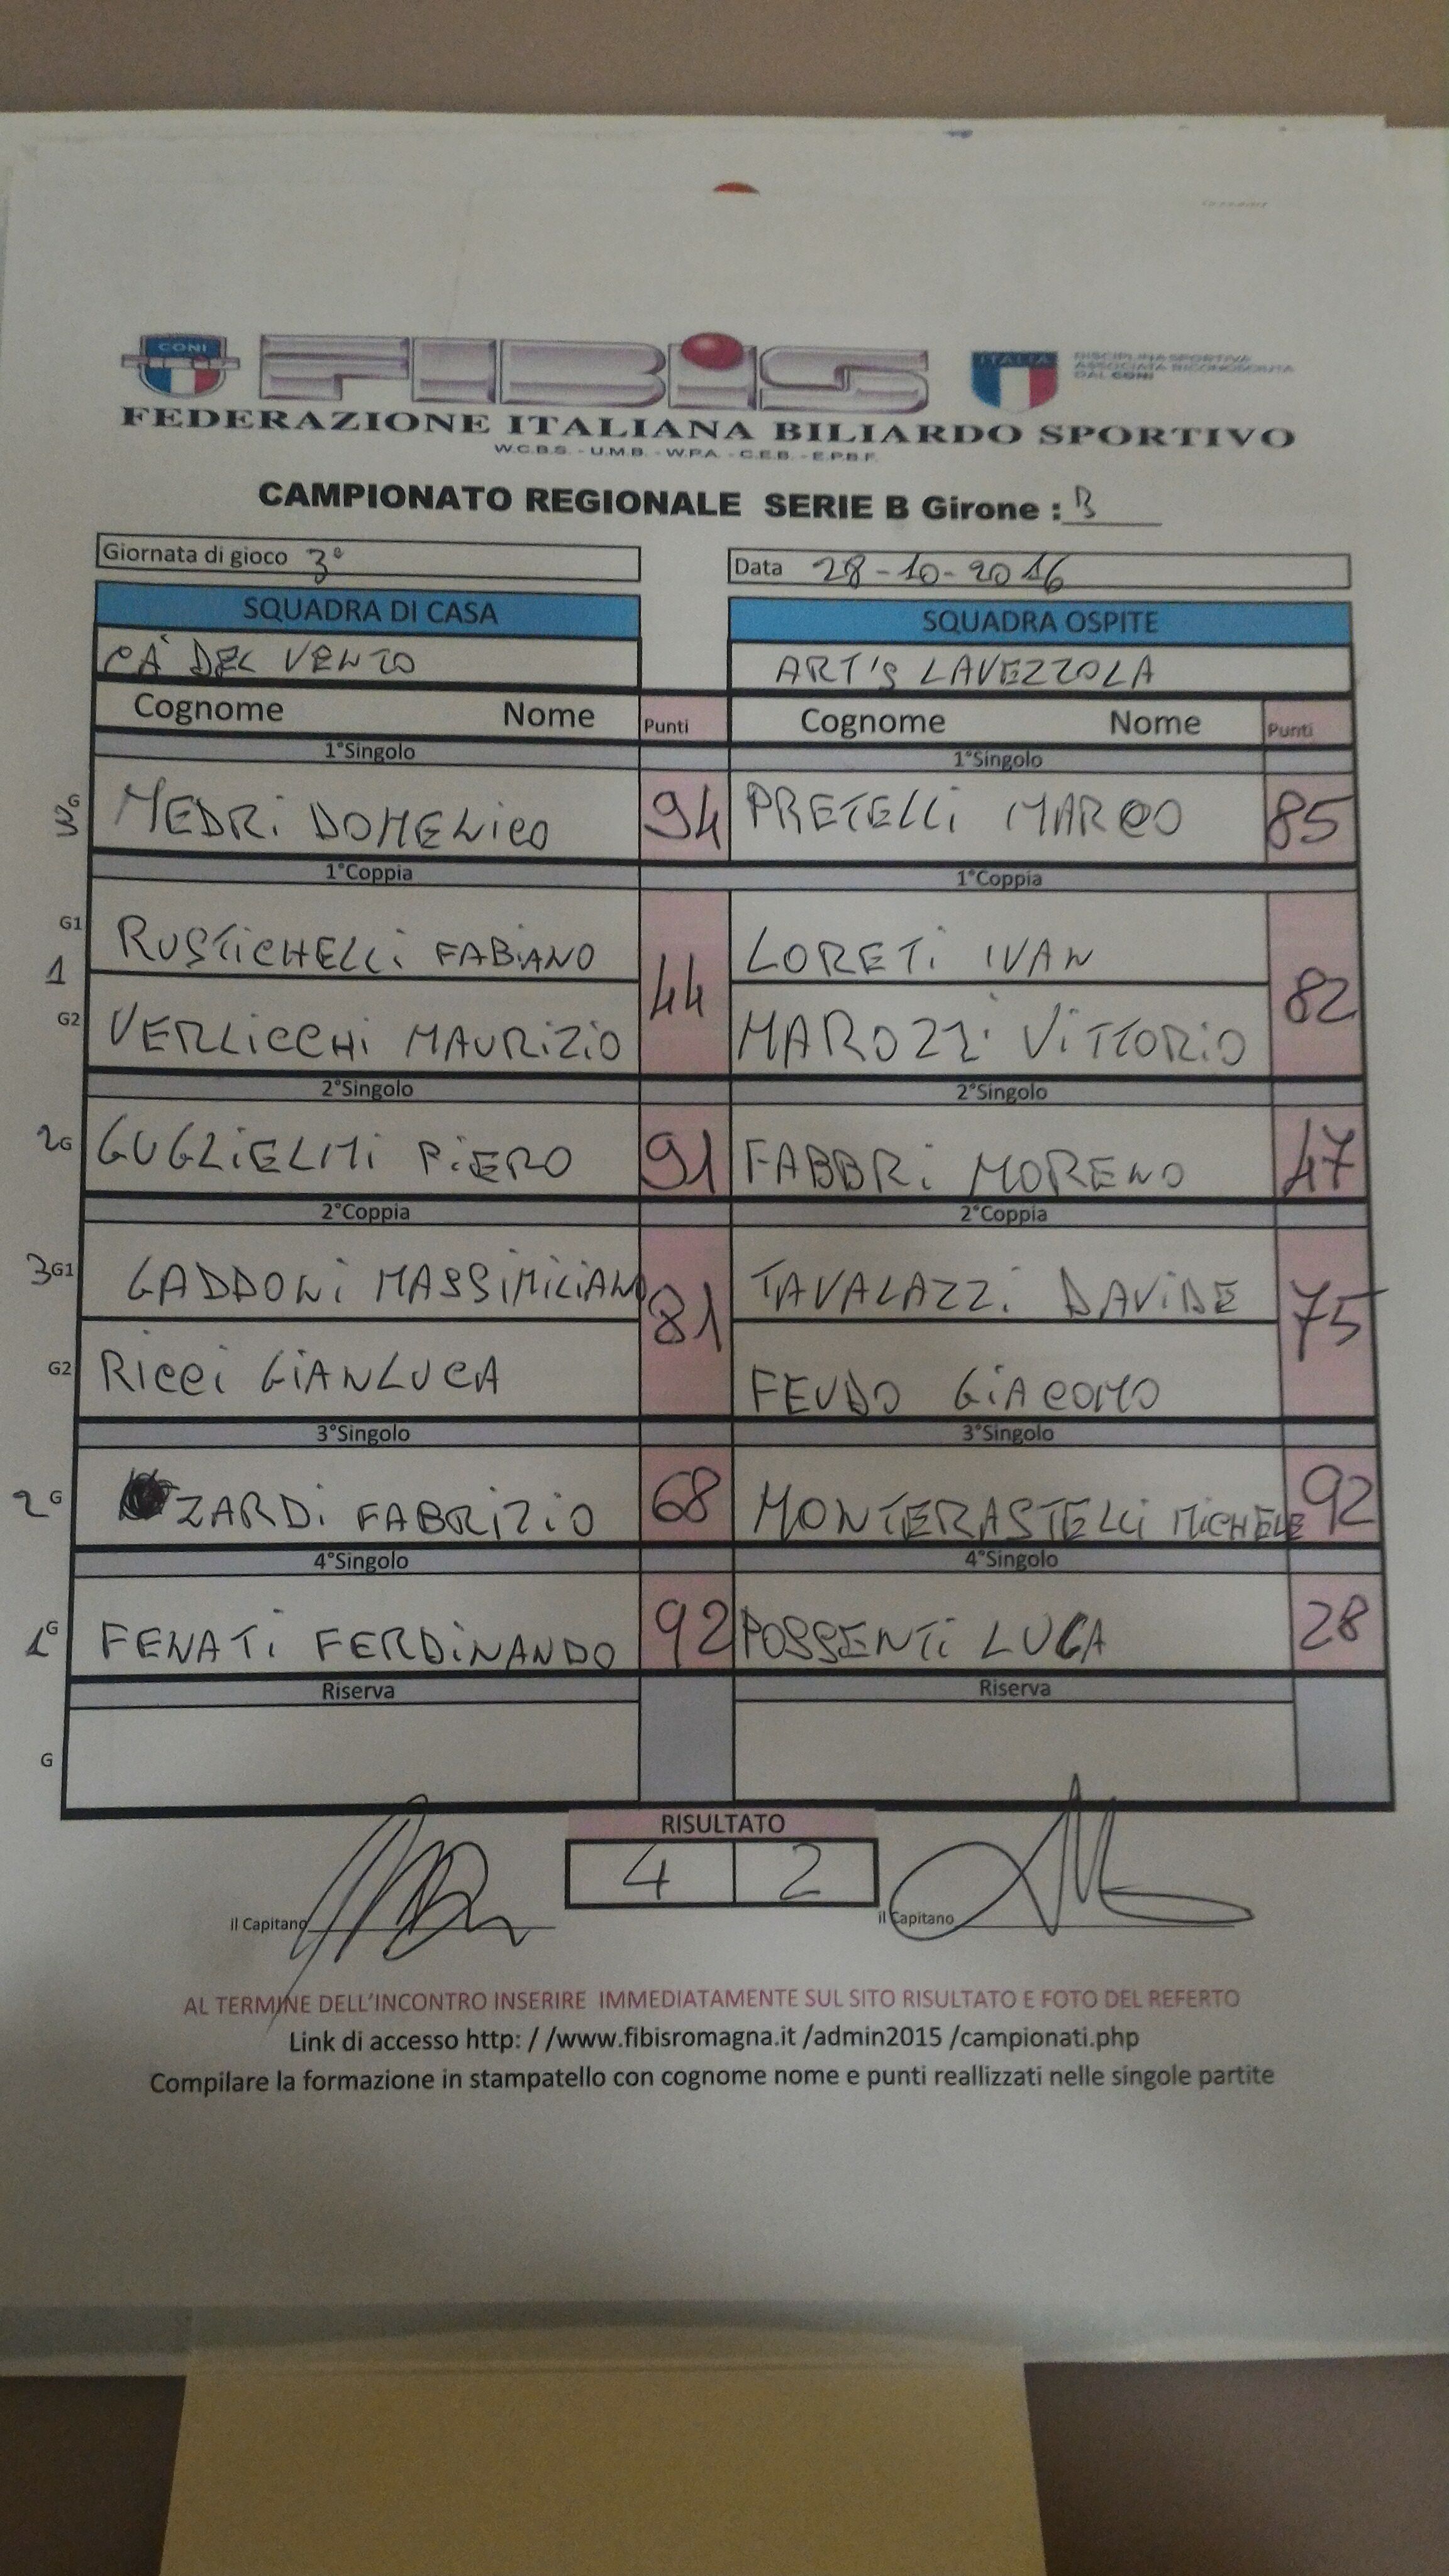 CONI FIBiS ITALIA DISCIPLINA SPORTIVA
ASSOCIATA RICONOSCIUTA
DAL CONI
FEDERAZIONE ITALIANA BILIARDO SPORTIVO
W.C.B.S. - U.M.B. - W.P.A. - C.E.B. - E.P.B.F.
CAMPIONATO REGIONALE SERIE B Girone : B
Giornata di gioco 3° Data 28-10-2016
SQUADRA DI CASA SQUADRA OSPITE
CA' DEL VENTO ART'S LAVEZZOLA
Cognome Nome Punti Cognome Nome Punti
1°Singolo 1°Singolo
3 G MEDRi DOMENiCO 94 PRETELLi MARCO 85
1°Coppia 1°Coppia
G1 RUSTiCHELLi FABiANO LORETi IVAN
1 44 82
G2 VERLiCCHi MAURiZiO MAROZZi ViTTORiO
2°Singolo 2°Singolo
2 G GUGLiELMi PiERO 91 FABBRi MORENO 47
2°Coppia 2°Coppia
3 G1 GADDONi MASSiMiLiANO 81 TAVALAZZi DAViDE 75
G2 RiCCi GiANLUCA FEUDO GiACOMO
3°Singolo 3°Singolo
2 G ZARDi FABRiZiO 68 MONTERASTELLi MiCHELE 92
4°Singolo 4°Singolo
1 G FENATi FERDiNANDO 92 POSSENTi LUCA 28
Riserva Riserva
G
RISULTATO
4 2
il Capitano il Capitano
AL TERMINE DELL'INCONTRO INSERIRE IMMEDIATAMENTE SUL SITO RISULTATO E FOTO DEL REFERTO
Link di accesso http: / /www.fibisromagna.it /admin2015 /campionati.php
Compilare la formazione in stampatello con cognome nome e punti reallizzati nelle singole partite